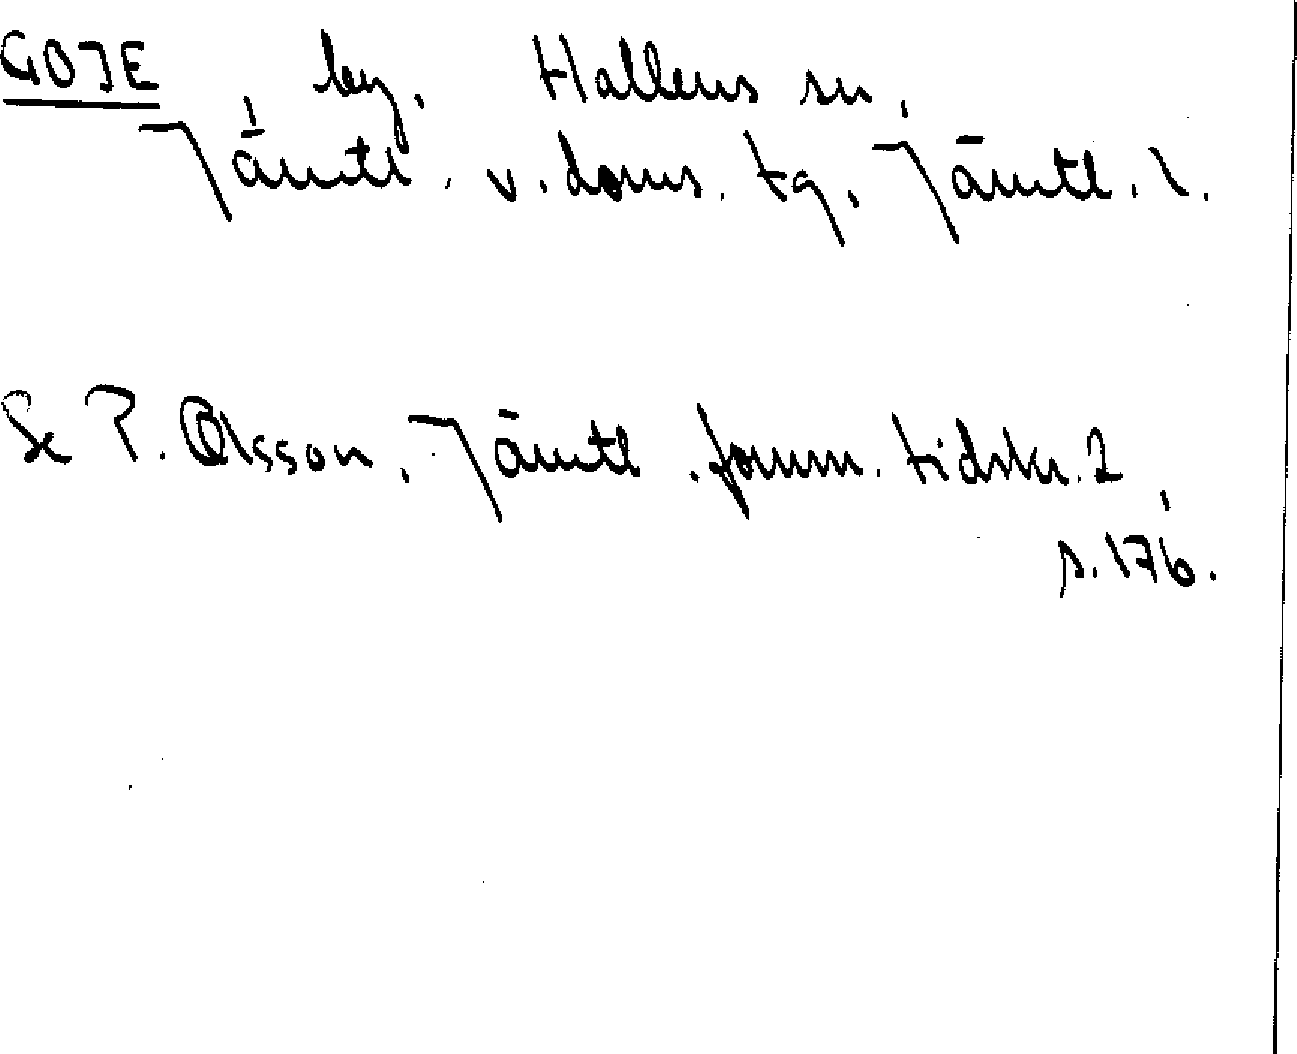 GOJE, by, Hallens sn,
Jämtl. v. doms. tg, Jämtl. l.
Se P. Olsson, Jämtl. fornm. tidskr. 2,
s. 176.